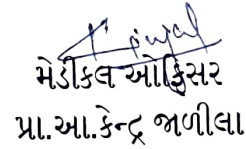 મેડીકલ ઓફિસર
પ્રા.આ.કેન્દ્ર જાળીલા